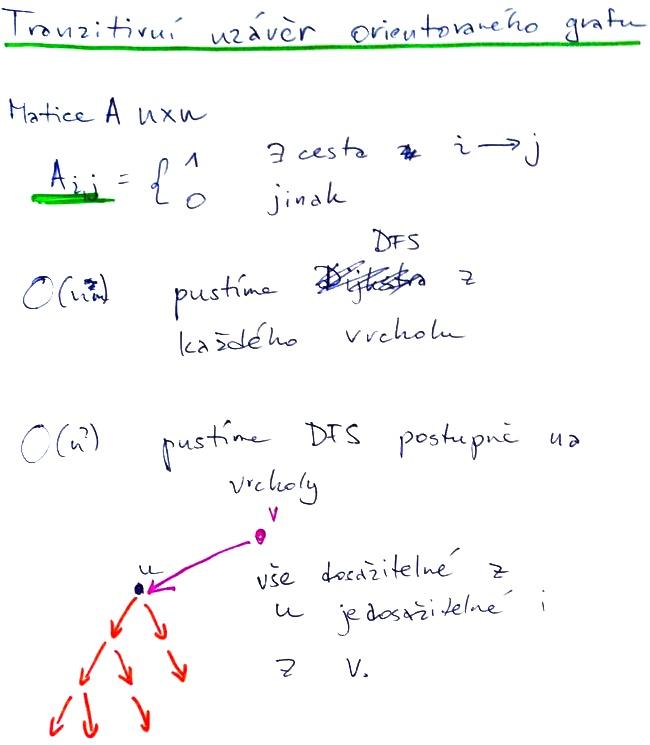 Tranzitivní uzávěr orientovaného grafu
Matice A n×n
A i,j = { 1 ∃ cesta i → j
0 jinak
DFS
pustíme z
každého vrcholu
O(n²) pustíme DFS postupně na
vrcholy
v
u
vše dosažitelné z
u je dosažitelné i
z v.